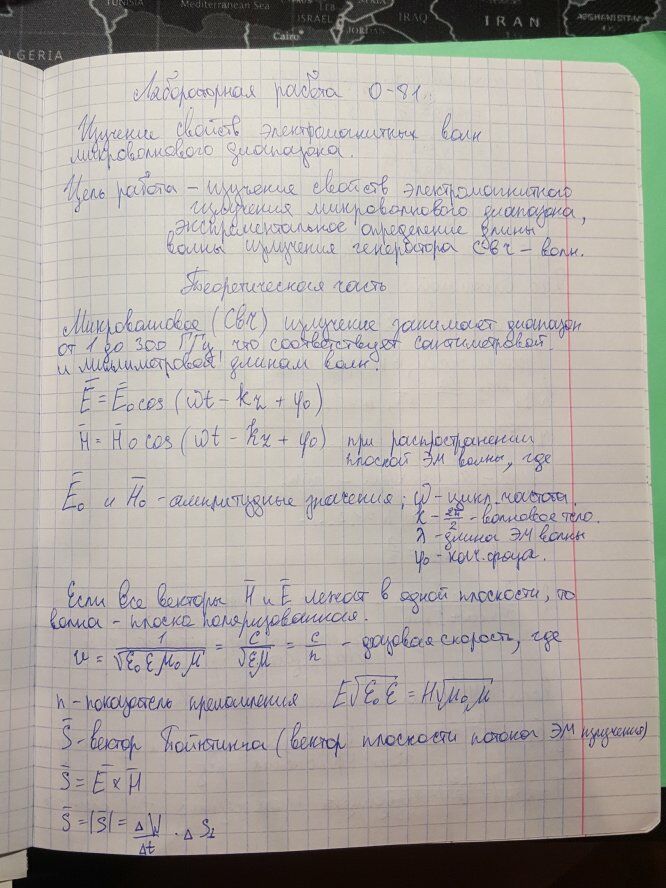 TUNISIA
Mediterranean Sea
ISRAEL
Cairo
JORDAN
IRAQ
IRAN
AFGHANISTAN
ALGERIA
Лабораторная работа О-81.
Изучение свойств электромагнитных волн
микроволнового диапазона.
Цель работа – изучение свойств электромагнитного
излучения микроволнового диапазона,
экспрементальное определение длины
волны излучение генератора СВЧ – волн.
Теоретическая часть
Микроволновое (СВЧ) излучение занимает диапазон
от 1 до 300 ГГц, что соответствует сантиметровой
и миллиметровой длинам волн.
E̅ = E̅₀ cos (ωt – kz + φ₀)
H̅ = H̅₀ cos (ωt – kz + φ₀) при распространении
плоской ЭМ волны, где
E̅₀ и H̅₀ – амплитудные значения; ω – цикл. частота.
k – 2π/2 – волновое тело.
λ – длина ЭМ волны
φ₀ – нач. фаза.
Если все векторы H̅ и E̅ лежат в одной плоскости, то
волна – плоско поляризованная.
υ = 1/√ε₀εμ₀μ = c/√εμ = c/n – фазовая скорость, где
n – показатель преломления E√ε₀ε = H√μ₀μ
S̅ – вектор Пойнтинга (вектор плоскости потока ЭМ излучения)
S̅ = E̅ × H̅
S̅ = |S̅| = ΔW/Δt · ΔS⊥